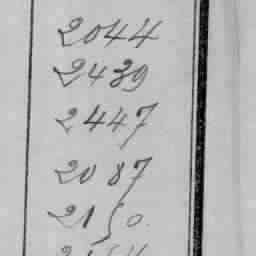 2044
2439
2447
2087
2150